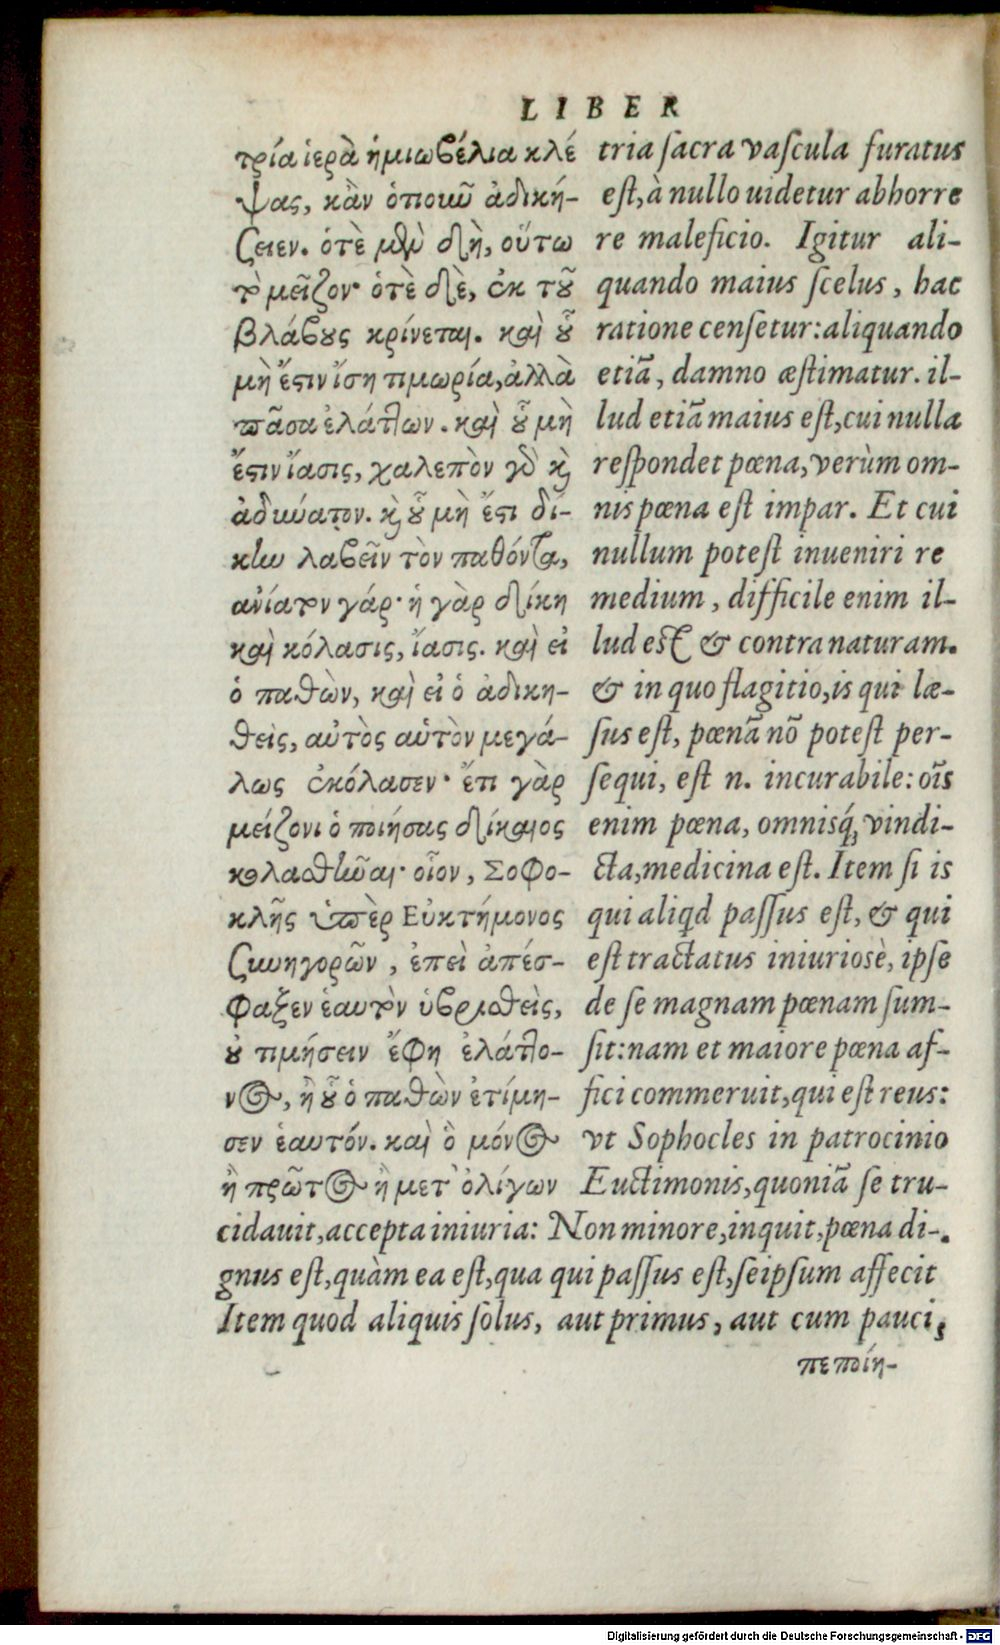 LIBER
τρία ἱερὰ ἡμιωβέλια κλέ
ψας, κἂν ὁποιοῦν ἀδική-
σειεν. ὁτὲ μὲν δὴ, οὕτω
τὸ μεῖζον· ὁτὲ δὲ, ἐκ τοῦ
βλάβους κρίνεται. καὶ οὗ
μὴ ἔστιν ἴση τιμωρία, ἀλλὰ
πᾶσα ἐλάττων. καὶ οὗ μὴ
ἔστιν ἴασις, χαλεπὸν γὰρ καὶ
ἀδύνατον. καὶ οὗ μὴ ἔστι δί-
κην λαβεῖν τὸν παθόντα,
ανίατον γάρ· ἡ γὰρ δίκη
καὶ κόλασις, ἴασις. καὶ εἰ
ὁ παθὼν, καὶ εἰ ὁ ἀδικη-
θεὶς, αὐτὸς αὑτὸν μεγά-
λως ἐκόλασεν· ἔτι γὰρ
μείζονι ὁ ποιήσας δίκαιος
κολασθῆναι· οἷον, Σοφο-
κλῆς ὑπὲρ Εὐκτήμονος
συνηγορῶν, ἐπεὶ ἀπέσ-
φαξεν ἑαυτὸν ὑβρισθεὶς,
οὐ τιμήσειν ἔφη ἐλάττο-
νος, ἢ οὗ ὁ παθὼν ἐτίμη-
σεν ἑαυτόν. καὶ ὃ μόνος
ἢ πρῶτος ἢ μετ' ὀλίγων
tria sacra vascula furatus
est, à nullo uidetur abhorre
re maleficio. Igitur ali-
quando maius scelus, hac
ratione censetur: aliquando
etiã, damno æstimatur. il-
lud etiã maius est, cui nulla
respondet pœna, verùm om-
nis pœna est impar. Et cui
nullum potest inueniri re
medium, difficile enim il-
lud est & contra naturam.
& in quo flagitio, is qui læ-
sus est, pœnã nõ potest per-
sequi, est n. incurabile: oĩs
enim pœna, omnisq́; vindi-
cta, medicina est. Item si is
qui aliqd passus est, & qui
est tractatus iniuriosè, ipse
de se magnam pœnam sum-
sit: nam et maiore pœna af-
fici commeruit, qui est reus:
vt Sophocles in patrocinio
Euctimonis, quoniã se tru-
cidauit, accepta iniuria: Non minore, inquit, pœna di-
gnus est, quàm ea est, qua qui passus est, seipsum affecit
Item quod aliquis solus, aut primus, aut cum pauci,
πεποίη-
Digitalisierung gefördert durch die Deutsche Forschungsgemeinschaft - DFG